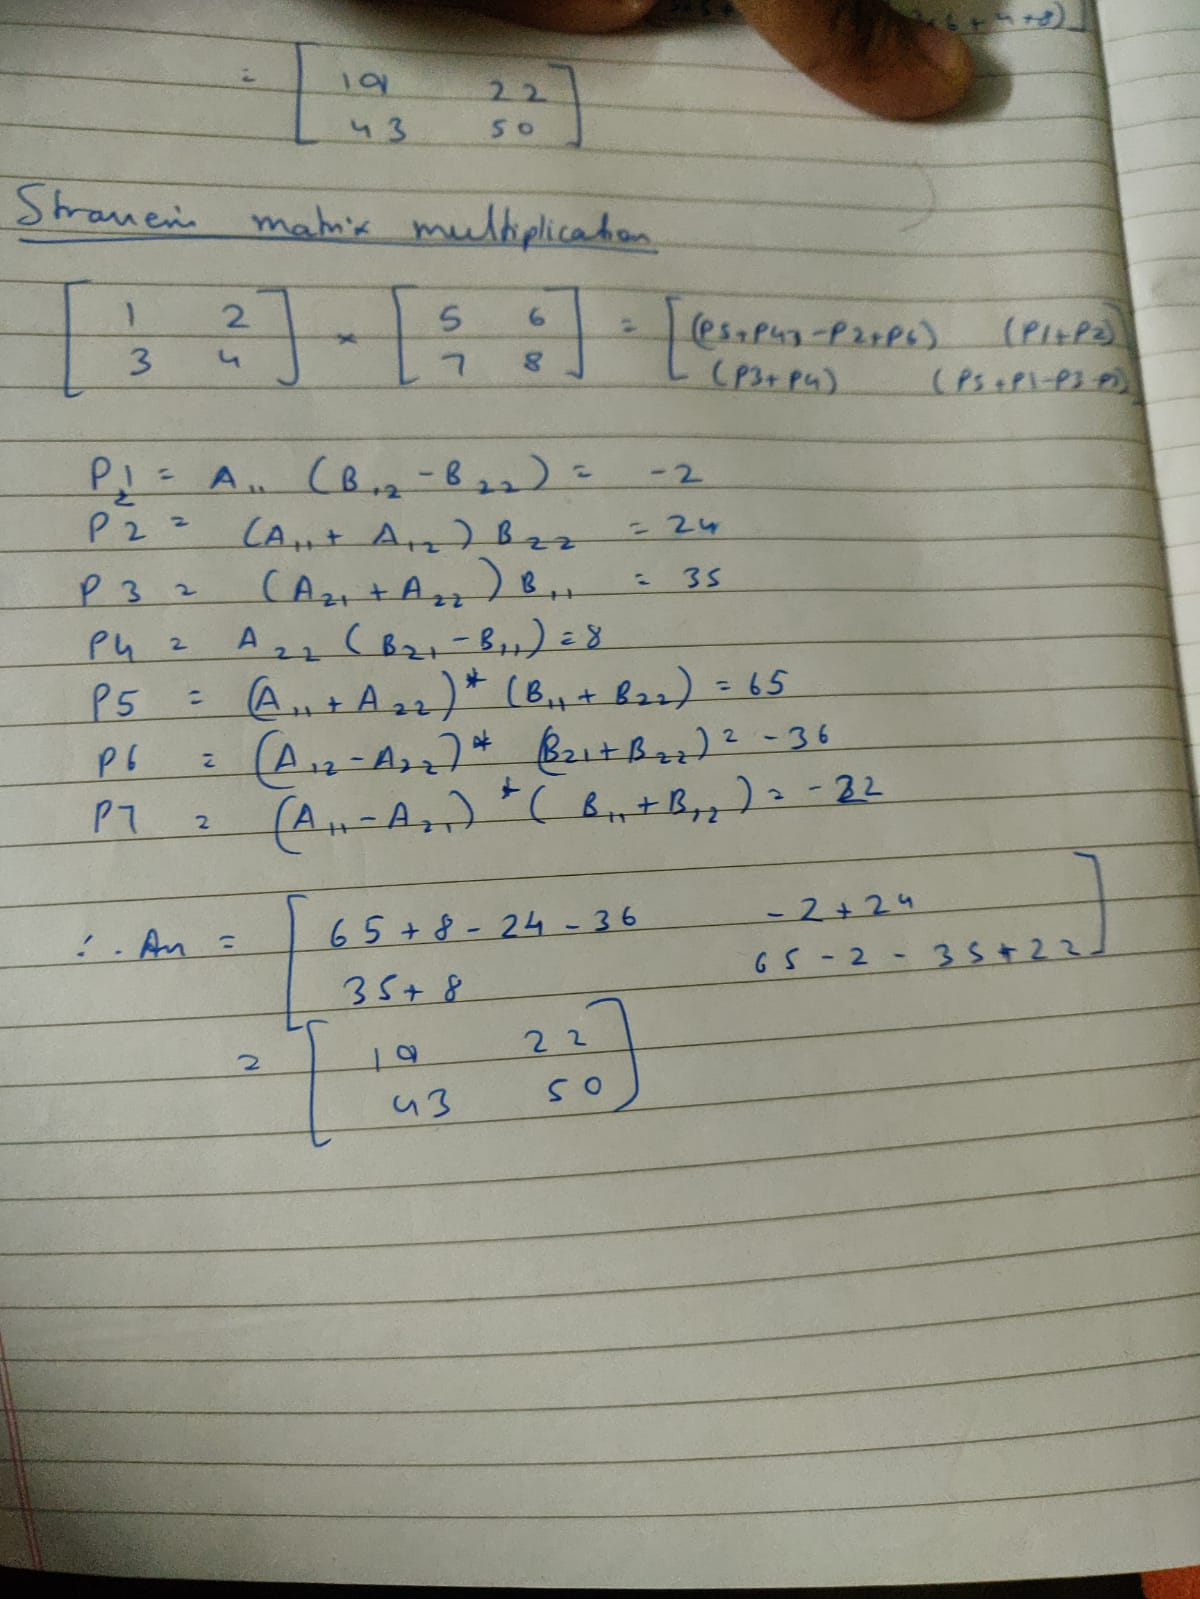 ×6 + 4 + 8)]
= [ 19 22
43 50 ]
Strassen's matrix multiplication
[ 1 2 ] × [ 5 6 ] = [ (P5+P4 -P2+P6) (P1+P2)
3 4 7 8 (P3+P4) (P5+P1-P3-P7) ]
P1 = A11 (B12 - B22) = -2
P2 = (A11 + A12) B22 = 24
P3 = (A21 + A22) B11 = 35
P4 = A22 (B21 - B11) = 8
P5 = (A11 + A22) * (B11 + B22) = 65
P6 = (A12 - A22) * (B21 + B22) = -36
P7 = (A11 - A21) * (B11 + B12) = -22
∴ An = [ 65 + 8 - 24 - 36 -2 + 24
35 + 8 65 - 2 - 35 + 22 ]
= [ 19 22
43 50 ]